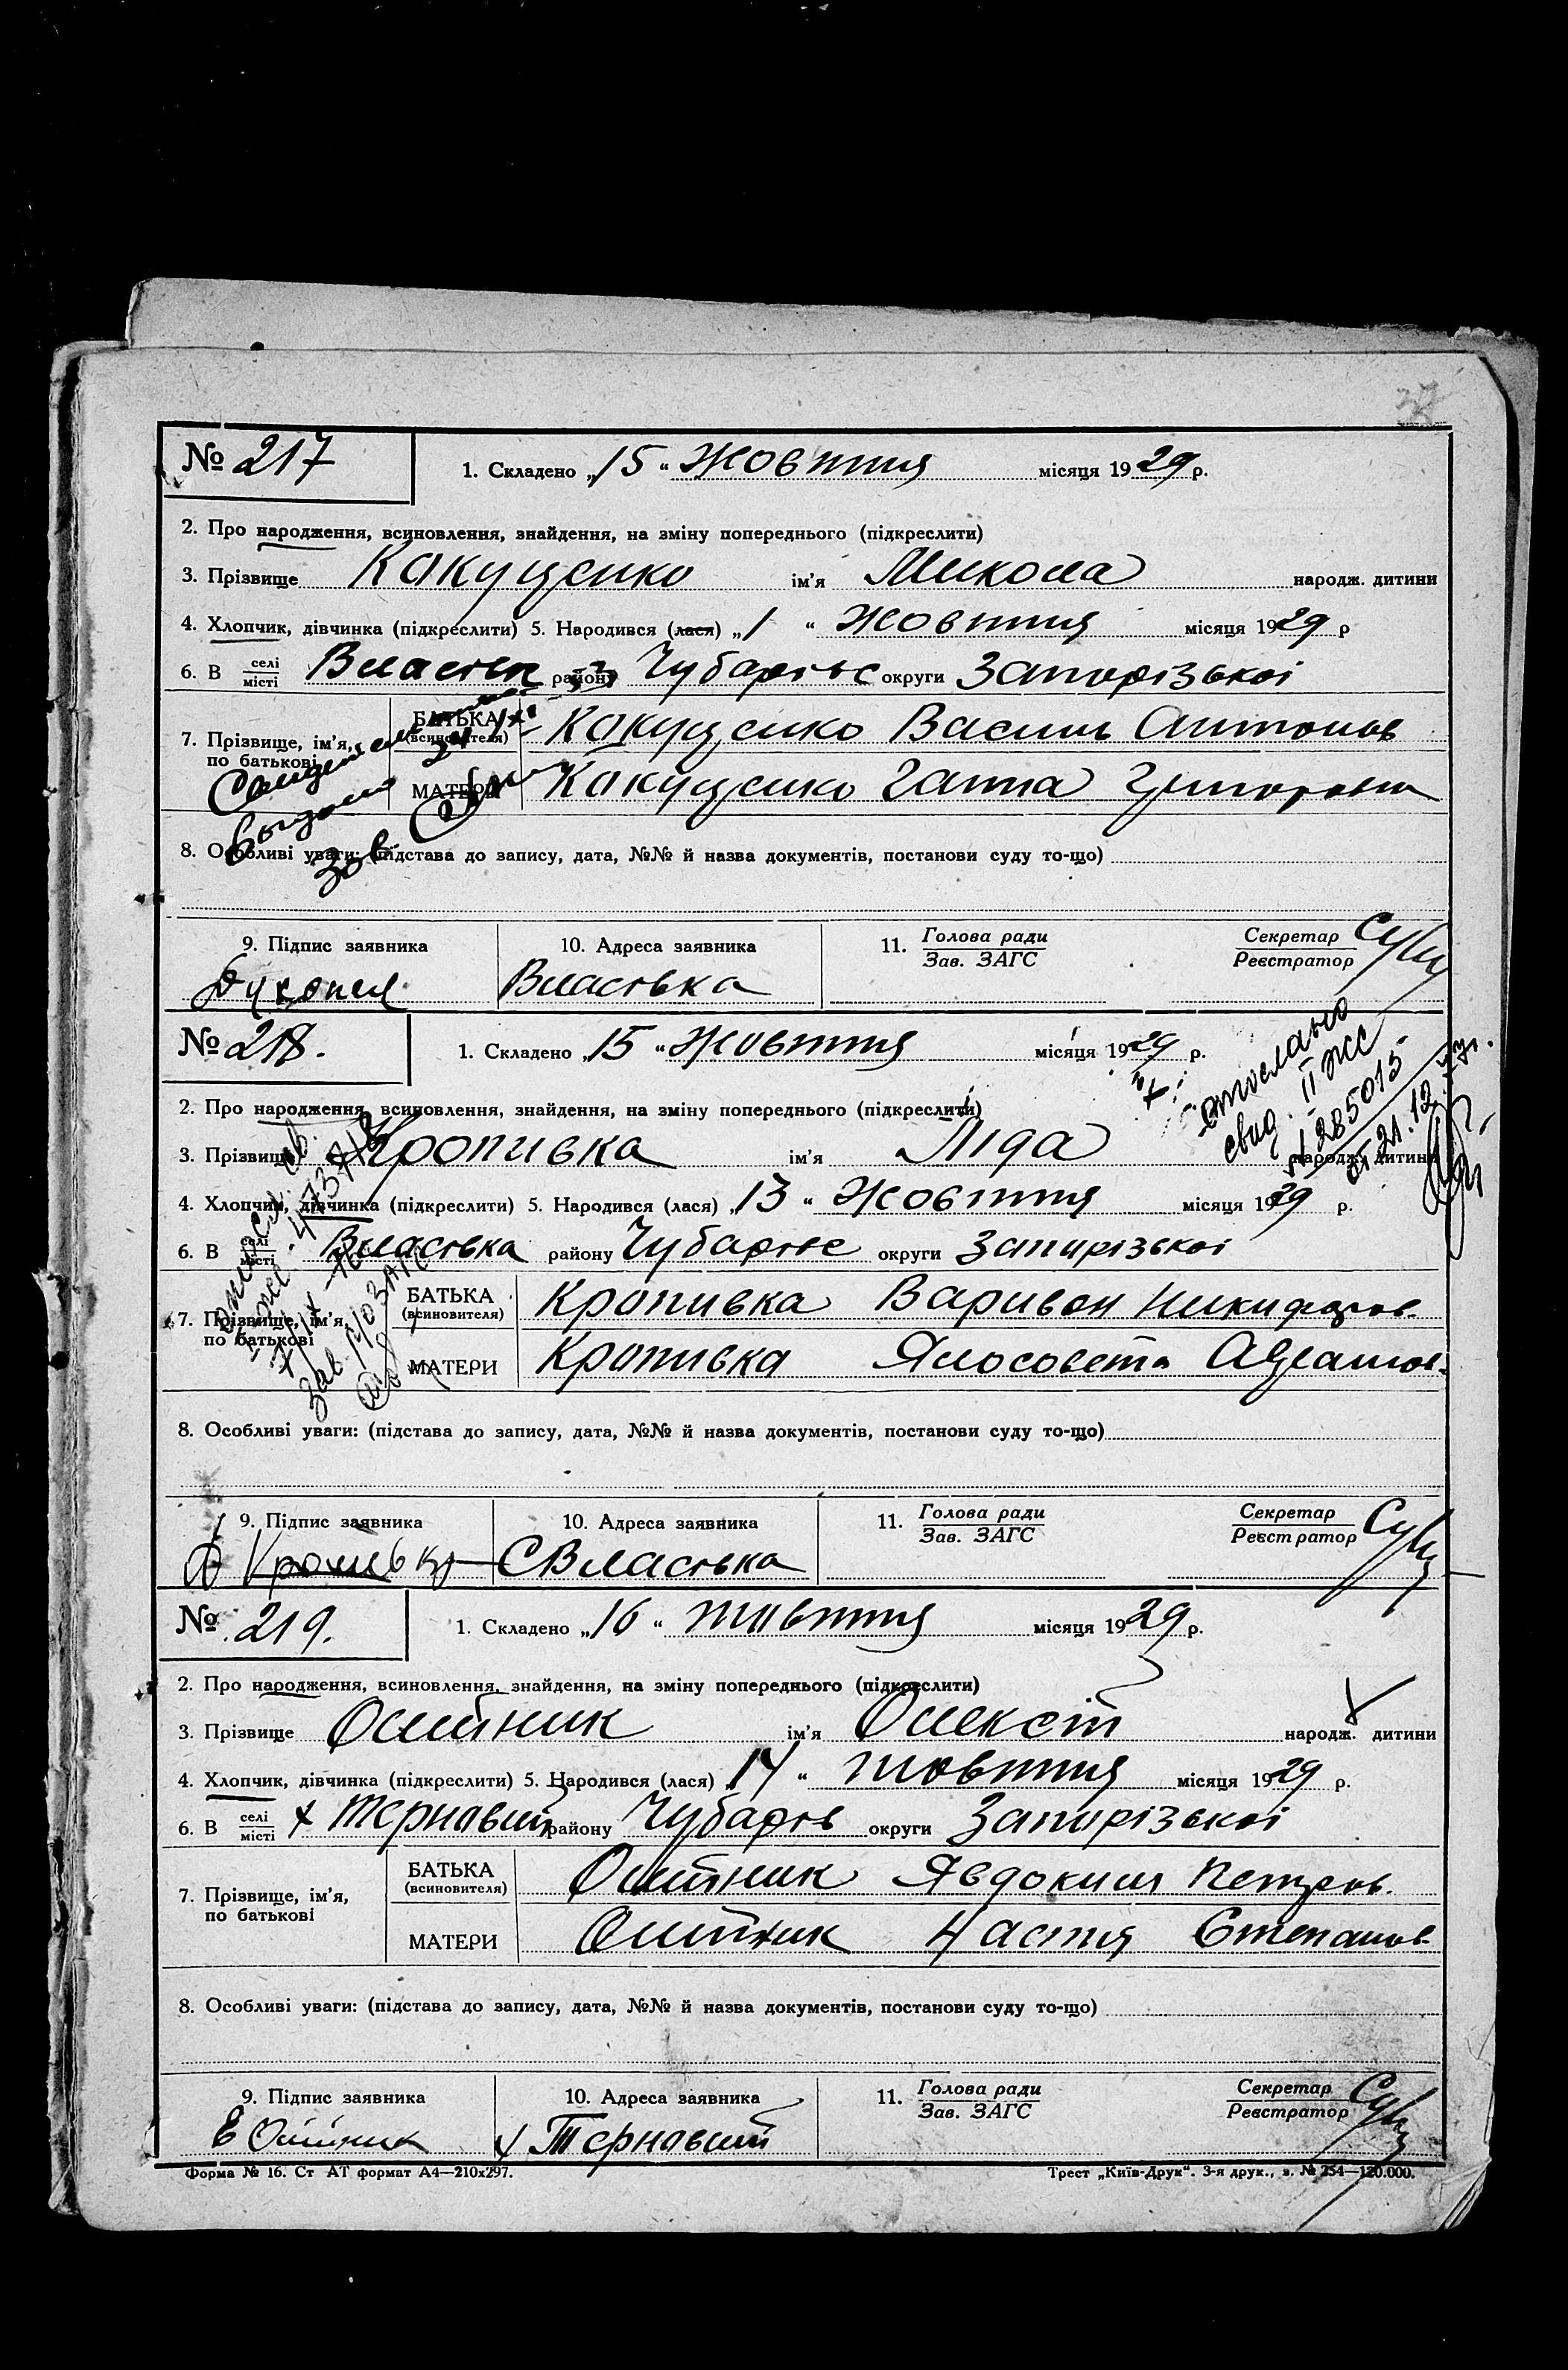 № 217
1. Складено „15“ Жовтня місяця 1929 р.
2. Про народження, всиновлення, знайдення, на зміну попереднього (підкреслити)
3. Прізвище Какуценко ім'я Микола народж. дитини
4. Хлопчик, дівчинка (підкреслити) 5. Народився (лася) „1“ жовтня місяця 1929 р
6. В селі/місті району Чубарівс округи Запорізької
7. Прізвище, ім'я, по батькові
БАТЬКА (всиновителя) Какуценко Василь Антонов
МАТЕРИ Какуценко Ганна
Зав.
8. Особливі уваги: (підстава до запису, дата, №№ й назва документів, постанови суду то-що)
9. Підпис заявника
10. Адреса заявника Власівка
11. Голова ради / Зав. ЗАГС
Секретар / Реєстратор
№ 218.
1. Складено „15“ Жовтня місяця 1929 р.
отослано
свид. II жс
285015
от 21.12.
2. Про народження, всиновлення, знайдення, на зміну попереднього (підкреслити)
3. Прізвище Кропивка ім'я Ліда народж. дитини
4. Хлопчик, дівчинка (підкреслити) 5. Народився (лася) „13“ Жовтня місяця 1929 р.
6. В селі/місті Власівка району Чубарівс округи Запорізької
7. Прізвище, ім'я, по батькові
БАТЬКА (всиновителя) Кропивка Варивон Никифоров.
МАТЕРИ Кропивка
8. Особливі уваги: (підстава до запису, дата, №№ й назва документів, постанови суду то-що)
9. Підпис заявника Кропивка
10. Адреса заявника С Власівка
11. Голова ради / Зав. ЗАГС
Секретар / Реєстратор
№ 219.
1. Складено „16“ жовтня місяця 1929 р.
2. Про народження, всиновлення, знайдення, на зміну попереднього (підкреслити)
3. Прізвище Олійник ім'я Олексій народж. дитини
4. Хлопчик, дівчинка (підкреслити) 5. Народився (лася) „14“ жовтня місяця 1929 р.
6. В селі/місті х району Чубарів округи Запорізької
7. Прізвище, ім'я, по батькові
БАТЬКА (всиновителя) Олійник Явдоким Петров.
МАТЕРИ Олійник Настя Степанов.
8. Особливі уваги: (підстава до запису, дата, №№ й назва документів, постанови суду то-що)
9. Підпис заявника Е Олійник
10. Адреса заявника х
11. Голова ради / Зав. ЗАГС
Секретар / Реєстратор
Форма № 16. Ст АТ формат А4—210х297.
Трест „Київ-Друк“. 3-я друк., з. № 254—120.000.